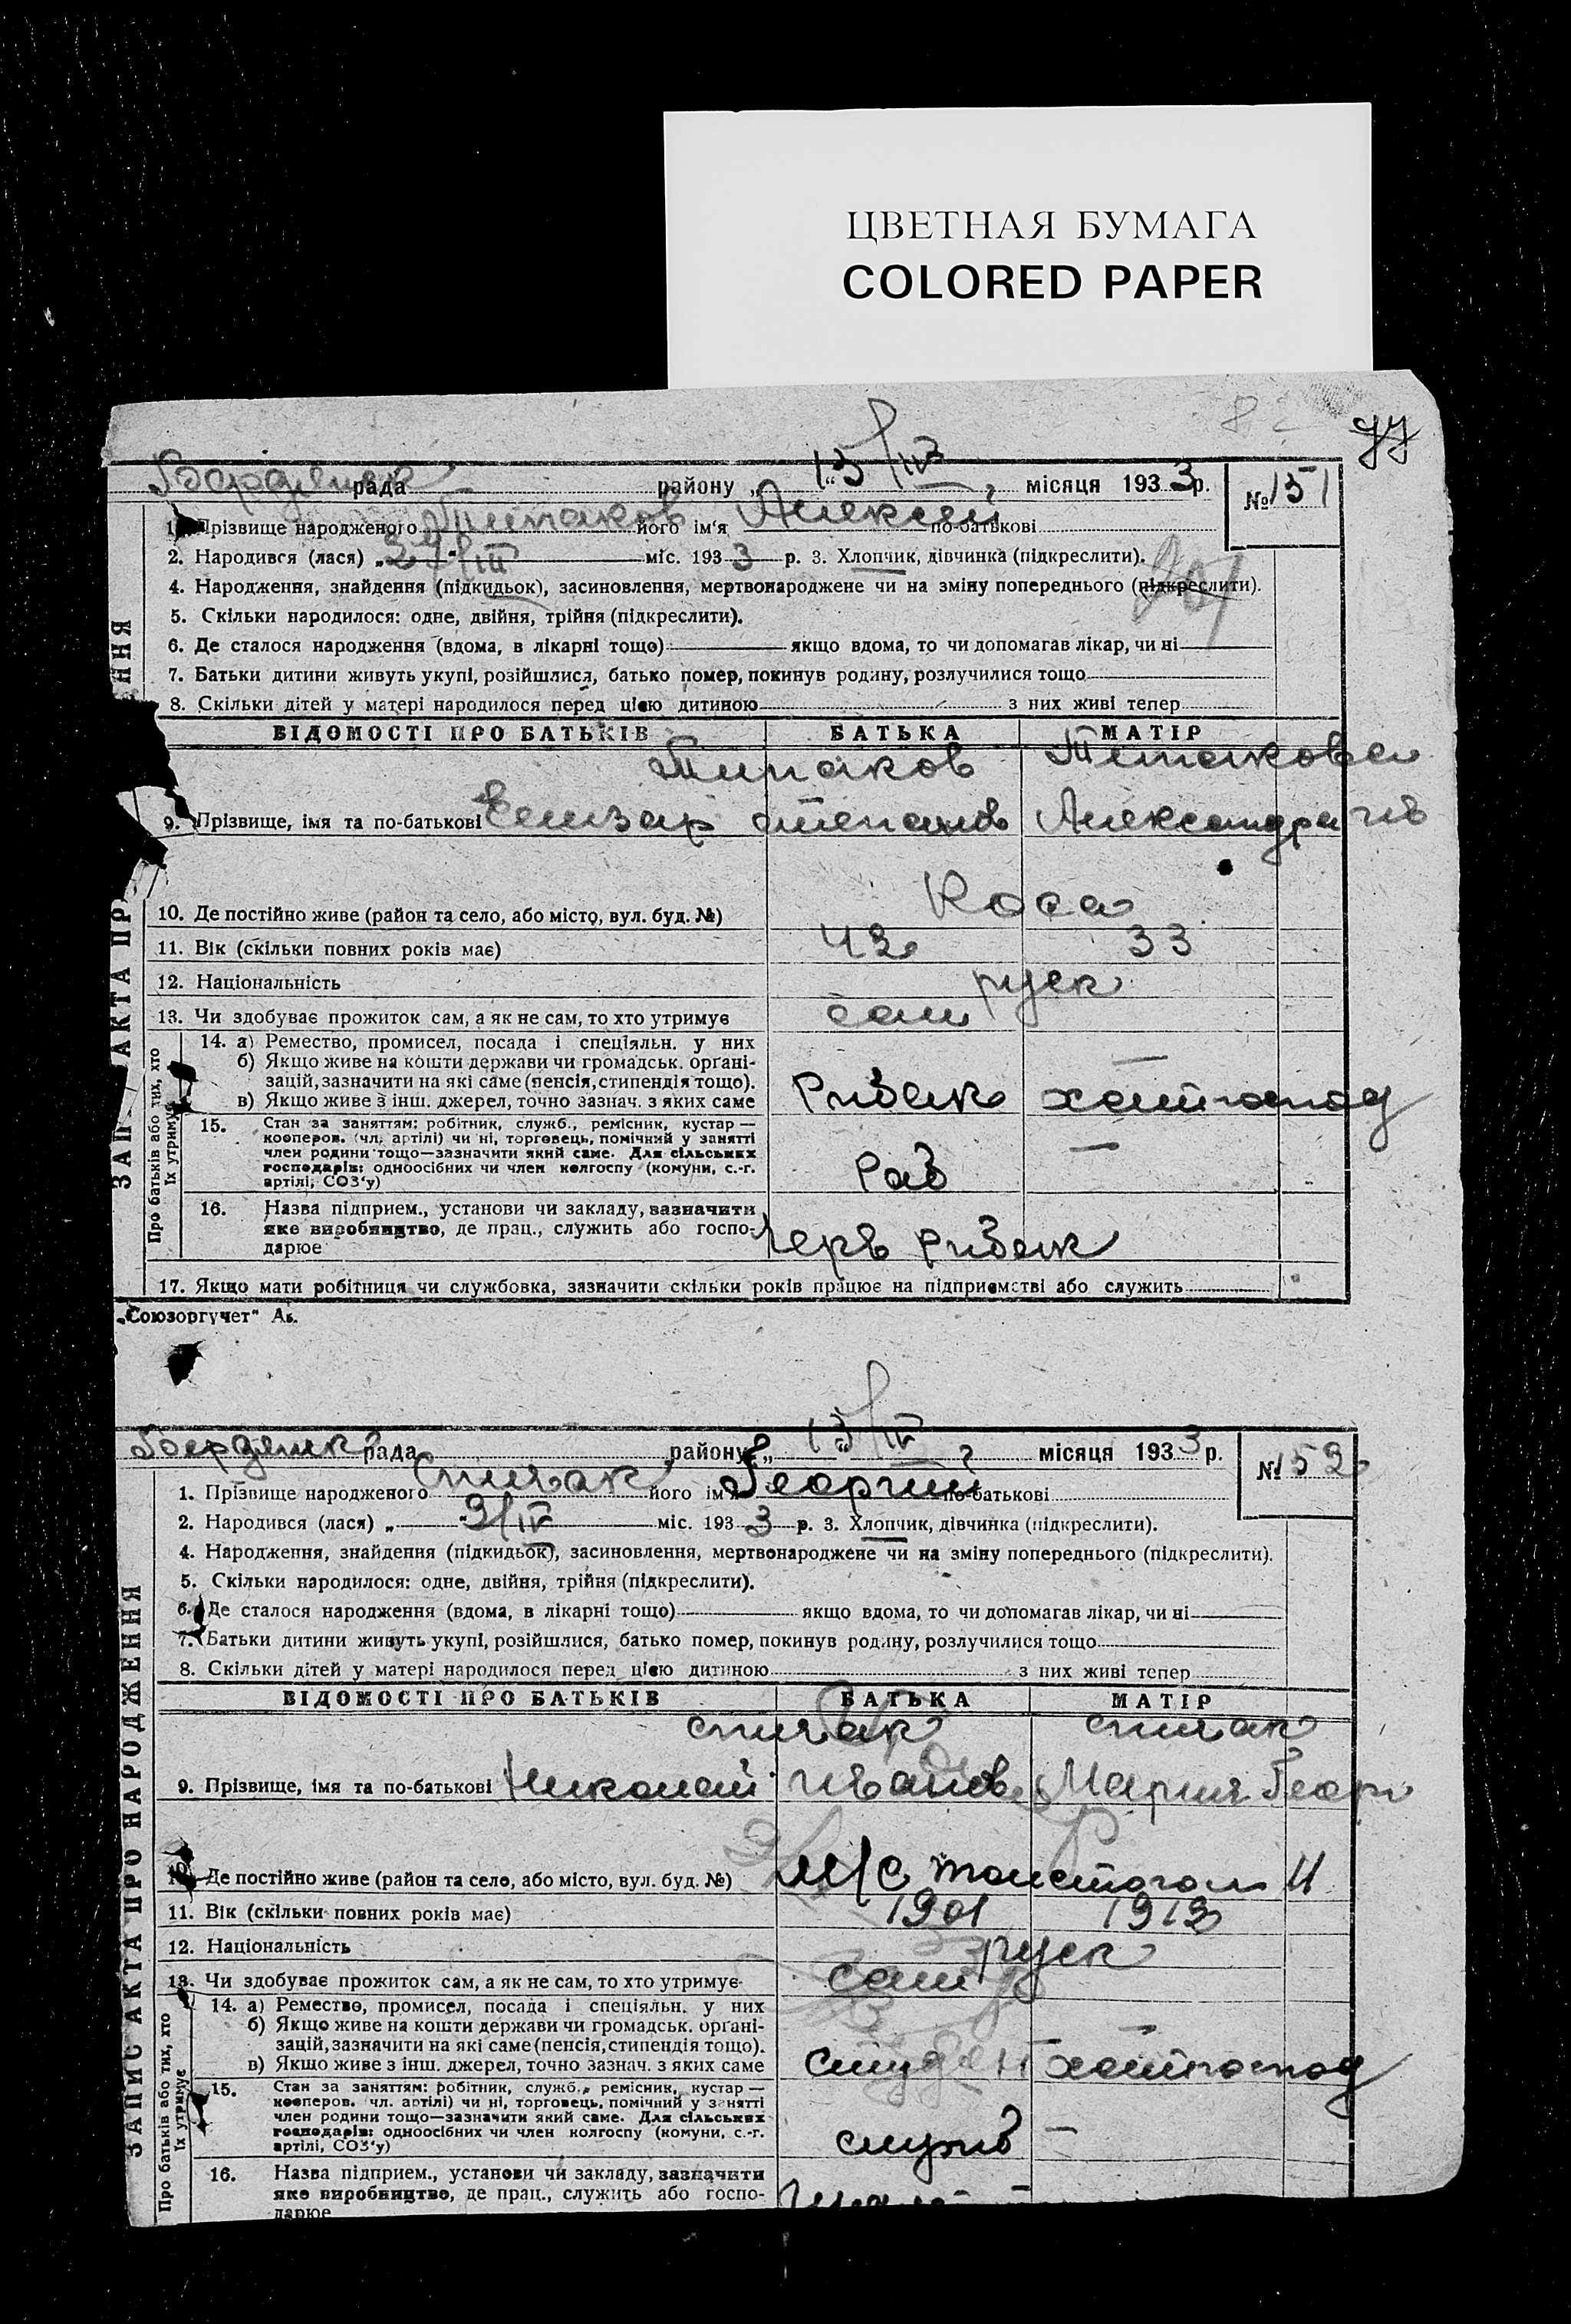 ЦВЕТНАЯ БУМАГА
COLORED PAPER
Бердянск рада району „13“ IV місяця 1933 р. № 151
1. Прізвище народженого його ім'я Алексей по-батькові
2. Народився (лася) „27“ III міс. 1933 р. 3. Хлопчик, дівчинка (підкреслити).
4. Народження, знайдення (підкидьок), засиновлення, мертвонароджене чи на зміну попереднього (підкреслити).
5. Скільки народилося: одне, двійня, трійня (підкреслити).
6. Де сталося народження (вдома, в лікарні тощо) якщо вдома, то чи допомагав лікар, чи ні
7. Батьки дитини живуть укупі, розійшлися, батько помер, покинув родину, розлучилися тощо
8. Скільки дітей у матері народилося перед цією дитиною з них живі тепер
ВІДОМОСТІ ПРО БАТЬКІВ БАТЬКА МАТІР
9. Прізвище, імя та по-батькові Елизар Степанов Александра
10. Де постійно живе (район та село, або місто, вул. буд. №) Коса
11. Вік (скільки повних років має) 42 33
12. Національність руск
13. Чи здобуває прожиток сам, а як не сам, то хто утримує сам
Про батьків або тих, хто їх утримує
14. а) Ремество, промисел, посада і спеціяльн. у них
б) Якщо живе на кошти держави чи громадськ. органі-
зацій, зазначити на які саме (пенсія, стипендія тощо). —
в) Якщо живе з інш. джерел, точно зазнач. з яких саме Рибак
15. Стан за заняттям: робітник, служб., ремісник, кустар —
кооперов. (чл. артілі) чи ні, торговець, помічний у занятті
член родини тощо—зазначити який саме. Для сільських —
господарів: одноосібних чи член колгоспу (комуни, с.-г. Раб
артілі, СОЗ'у)
16. Назва підприем., установи чи закладу, зазначити
яке виробництво, де прац., служить або госпо- Черв рибак
дарює
17. Якщо мати робітниця чи службовка, зазначити скільки років працює на підприємстві або служить
„Союзоргучет“
Бердянск рада району „13“ IV місяця 1933 р. № 152
1. Прізвище народженого Спивак його ім'я Георгий по-батькові
2. Народився (лася) „9“ IV міс. 1933 р. 3. Хлопчик, дівчинка (підкреслити).
4. Народження, знайдення (підкидьок), засиновлення, мертвонароджене чи на зміну попереднього (підкреслити).
5. Скільки народилося: одне, двійня, трійня (підкреслити).
6. Де сталося народження (вдома, в лікарні тощо) якщо вдома, то чи допомагав лікар, чи ні
7. Батьки дитини живуть укупі, розійшлися, батько помер, покинув родину, розлучилися тощо
8. Скільки дітей у матері народилося перед цією дитиною з них живі тепер
ЗАПИС АКТА ПРО НАРОДЖЕННЯ
ВІДОМОСТІ ПРО БАТЬКІВ БАТЬКА МАТІР
Спивак Спивак
9. Прізвище, імя та по-батькові Николай Иванов Мария Георг
10. Де постійно живе (район та село, або місто, вул. буд. №)
11. Вік (скільки повних років має) 1901 1913
12. Національність руск
13. Чи здобуває прожиток сам, а як не сам, то хто утримує сам
Про батьків або тих, хто їх утримує
14. а) Ремество, промисел, посада і спеціяльн. у них
б) Якщо живе на кошти держави чи громадськ. органі-
зацій, зазначити на які саме (пенсія, стипендія тощо). —
в) Якщо живе з інш. джерел, точно зазнач. з яких саме
15. Стан за заняттям: робітник, служб., ремісник, кустар —
кооперов. чл. артілі) чи ні, торговець, помічний у занятті
член родини тощо—зазначити який саме. Для сільських
господарів: одноосібних чи член колгоспу (комуни, с.-г. служб —
артілі, СОЗ'у)
16. Назва підприем., установи чи закладу, зазначити
яке виробництво, де прац., служить або госпо-
дарює